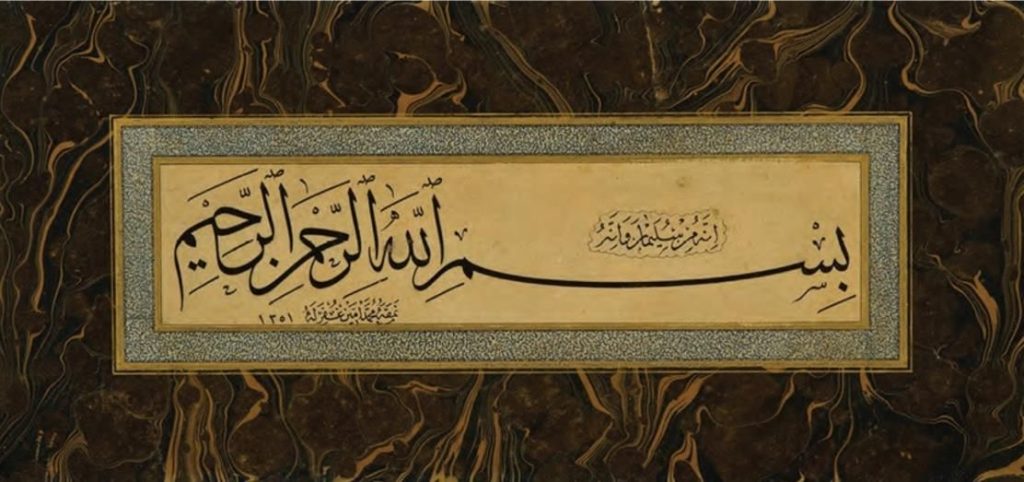 اِنَّهُ مِنْ سُلَيْمٰنَ وَاِنَّهُ
بِسْمِ اللّٰهِ الرَّحْمٰنِ الرَّحِيْمِ
نمقه محمد امين غفر له ١٣٥١